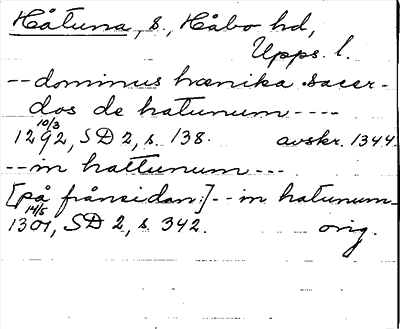 Håtuna, s., Håbo hd,
Upps. l.
-- dominus hænika sacer-
dos de hatunum ----
10/3
1292, SD 2, s. 138. avskr. 1344.
-- in hattunum ---
[på frånsidan:] -- in hatunum-
14/5
1301, SD 2, s. 342. orig.